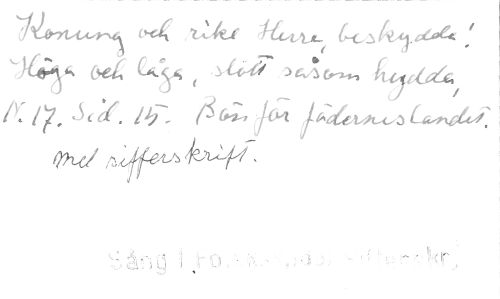 Konung och rike Herre, beskydda!
Höga och låga, slott såsom hydda,
N. 17. Sid. 15. Bön för fäderneslandet.
med sifferskrift.
Sång